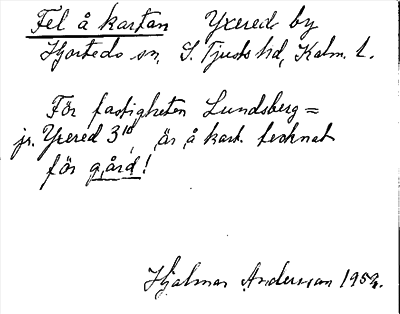 Fel å kartan Yxered by
Hjorteds sn, S. Tjusts hd, Kalm. l.
För fastigheten Lundsberg =
jr. Yxered 3¹⁰, är å kart. tecknat
för gård!
Hjalmar Andersson 1953.